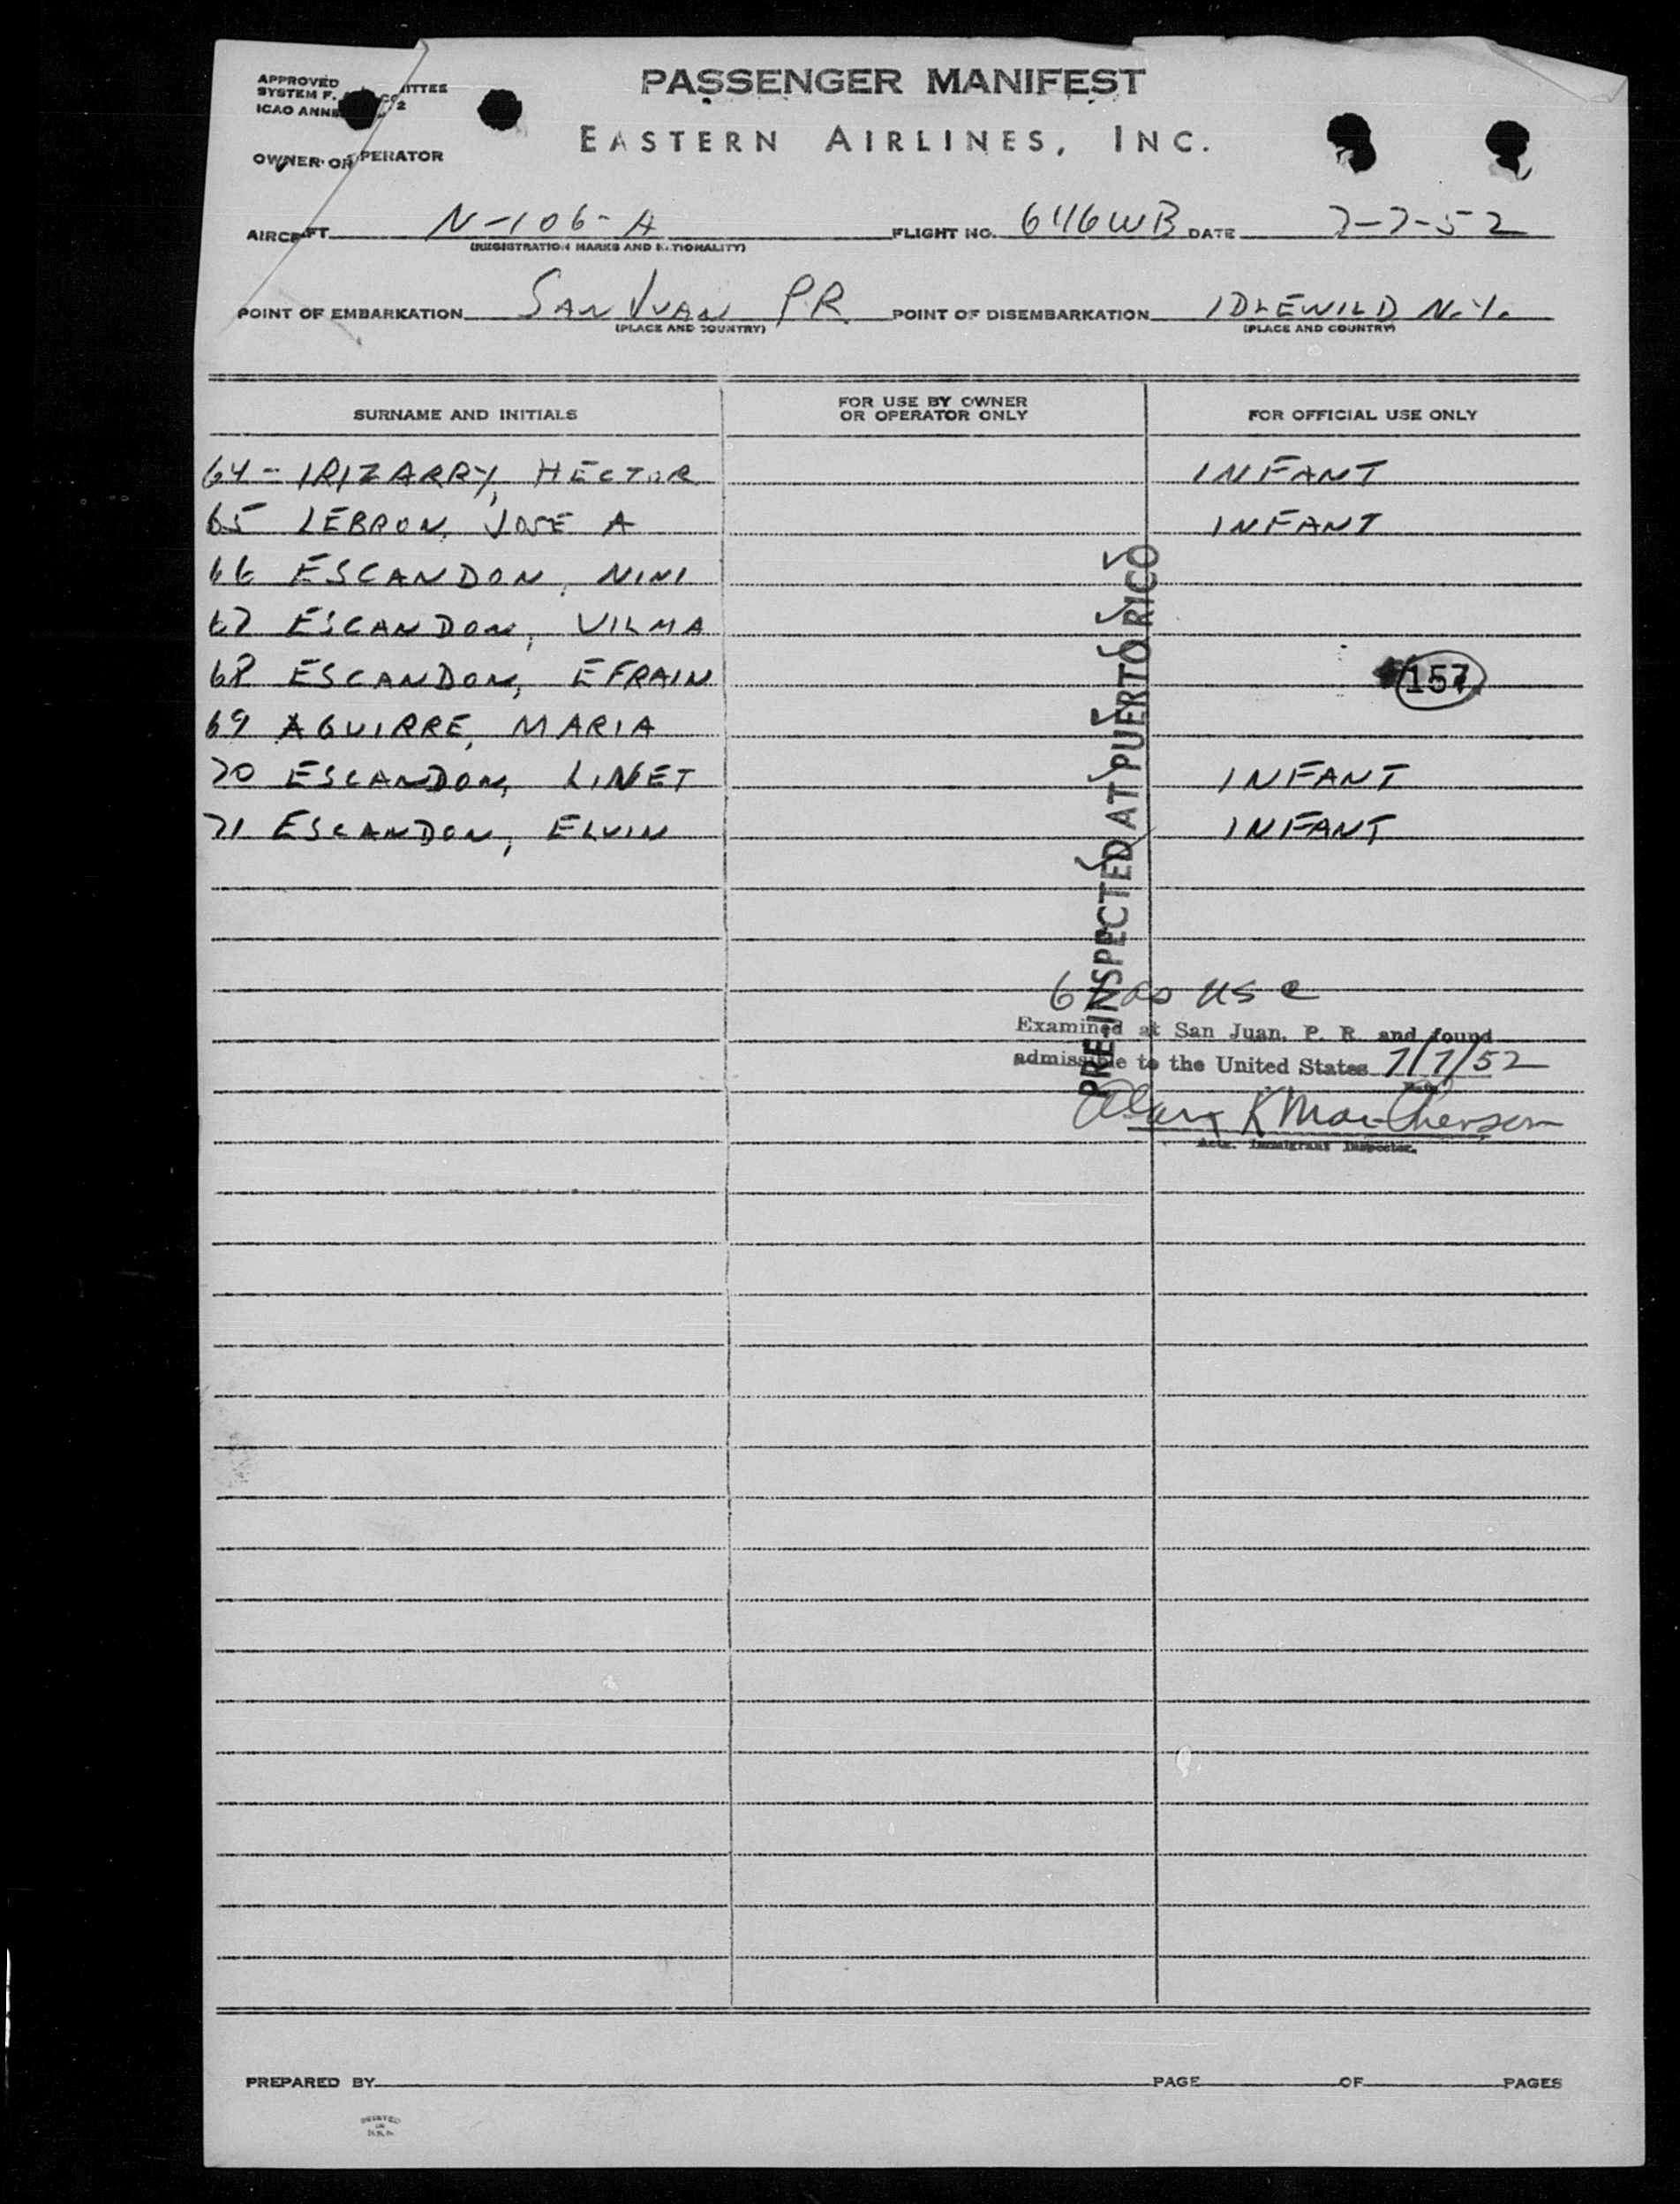 PASSENGER MANIFEST
EASTERN AIRLINES, INC.
APPROVED
SYSTEM F.
ICAO ANNE 2
OWNER OR OPERATOR
AIRCRAFT N-106-A FLIGHT NO. 646WB DATE 7-7-52
(REGISTRATION MARKS AND NATIONALITY)
POINT OF EMBARKATION SAN JUAN P.R. POINT OF DISEMBARKATION IDLEWILD N.Y.
(PLACE AND COUNTRY) (PLACE AND COUNTRY)
SURNAME AND INITIALS FOR USE BY OWNER OR OPERATOR ONLY FOR OFFICIAL USE ONLY
64- IRIZARRY, HECTOR INFANT
65 LEBRON, JOSE A INFANT
66 ESCANDON, NINI
67 ESCANDON, VILMA
68 ESCANDON, EFRAIN 157
69 AGUIRRE, MARIA
70 ESCANDON, LINET INFANT
71 ESCANDON, ELVIN INFANT
PREINSPECTED AT PUERTO RICO
as USC
Examined at San Juan, P. R. and found
admissible to the United States 7/7/52
Date
Immigrant Inspector.
PREPARED BY PAGE OF PAGES
PRINTED
IN
U.S.A.